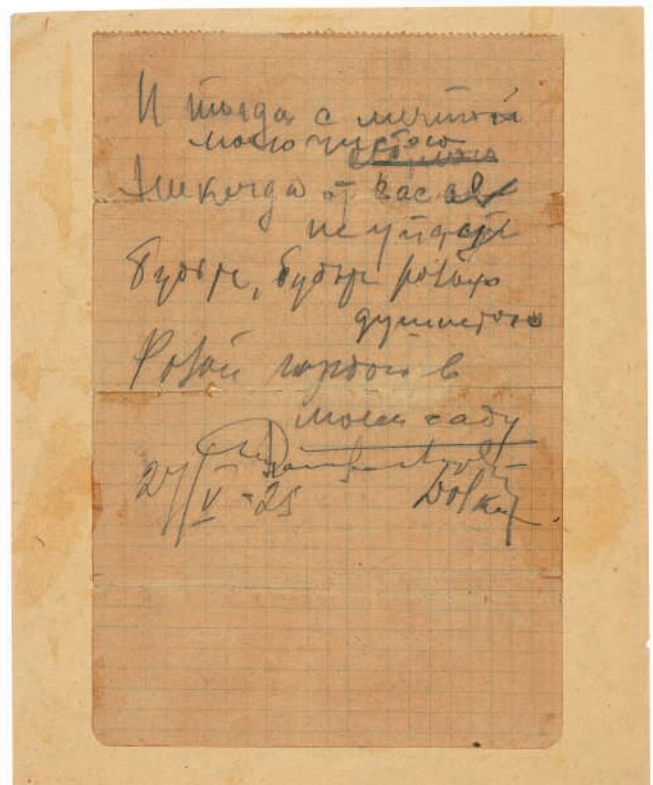 И тогда с мечтой
моею чистою
Никогда от вас
не уйду
Будьте, будьте розою
душистою
Розой гордою в
моем саду
27/V-25